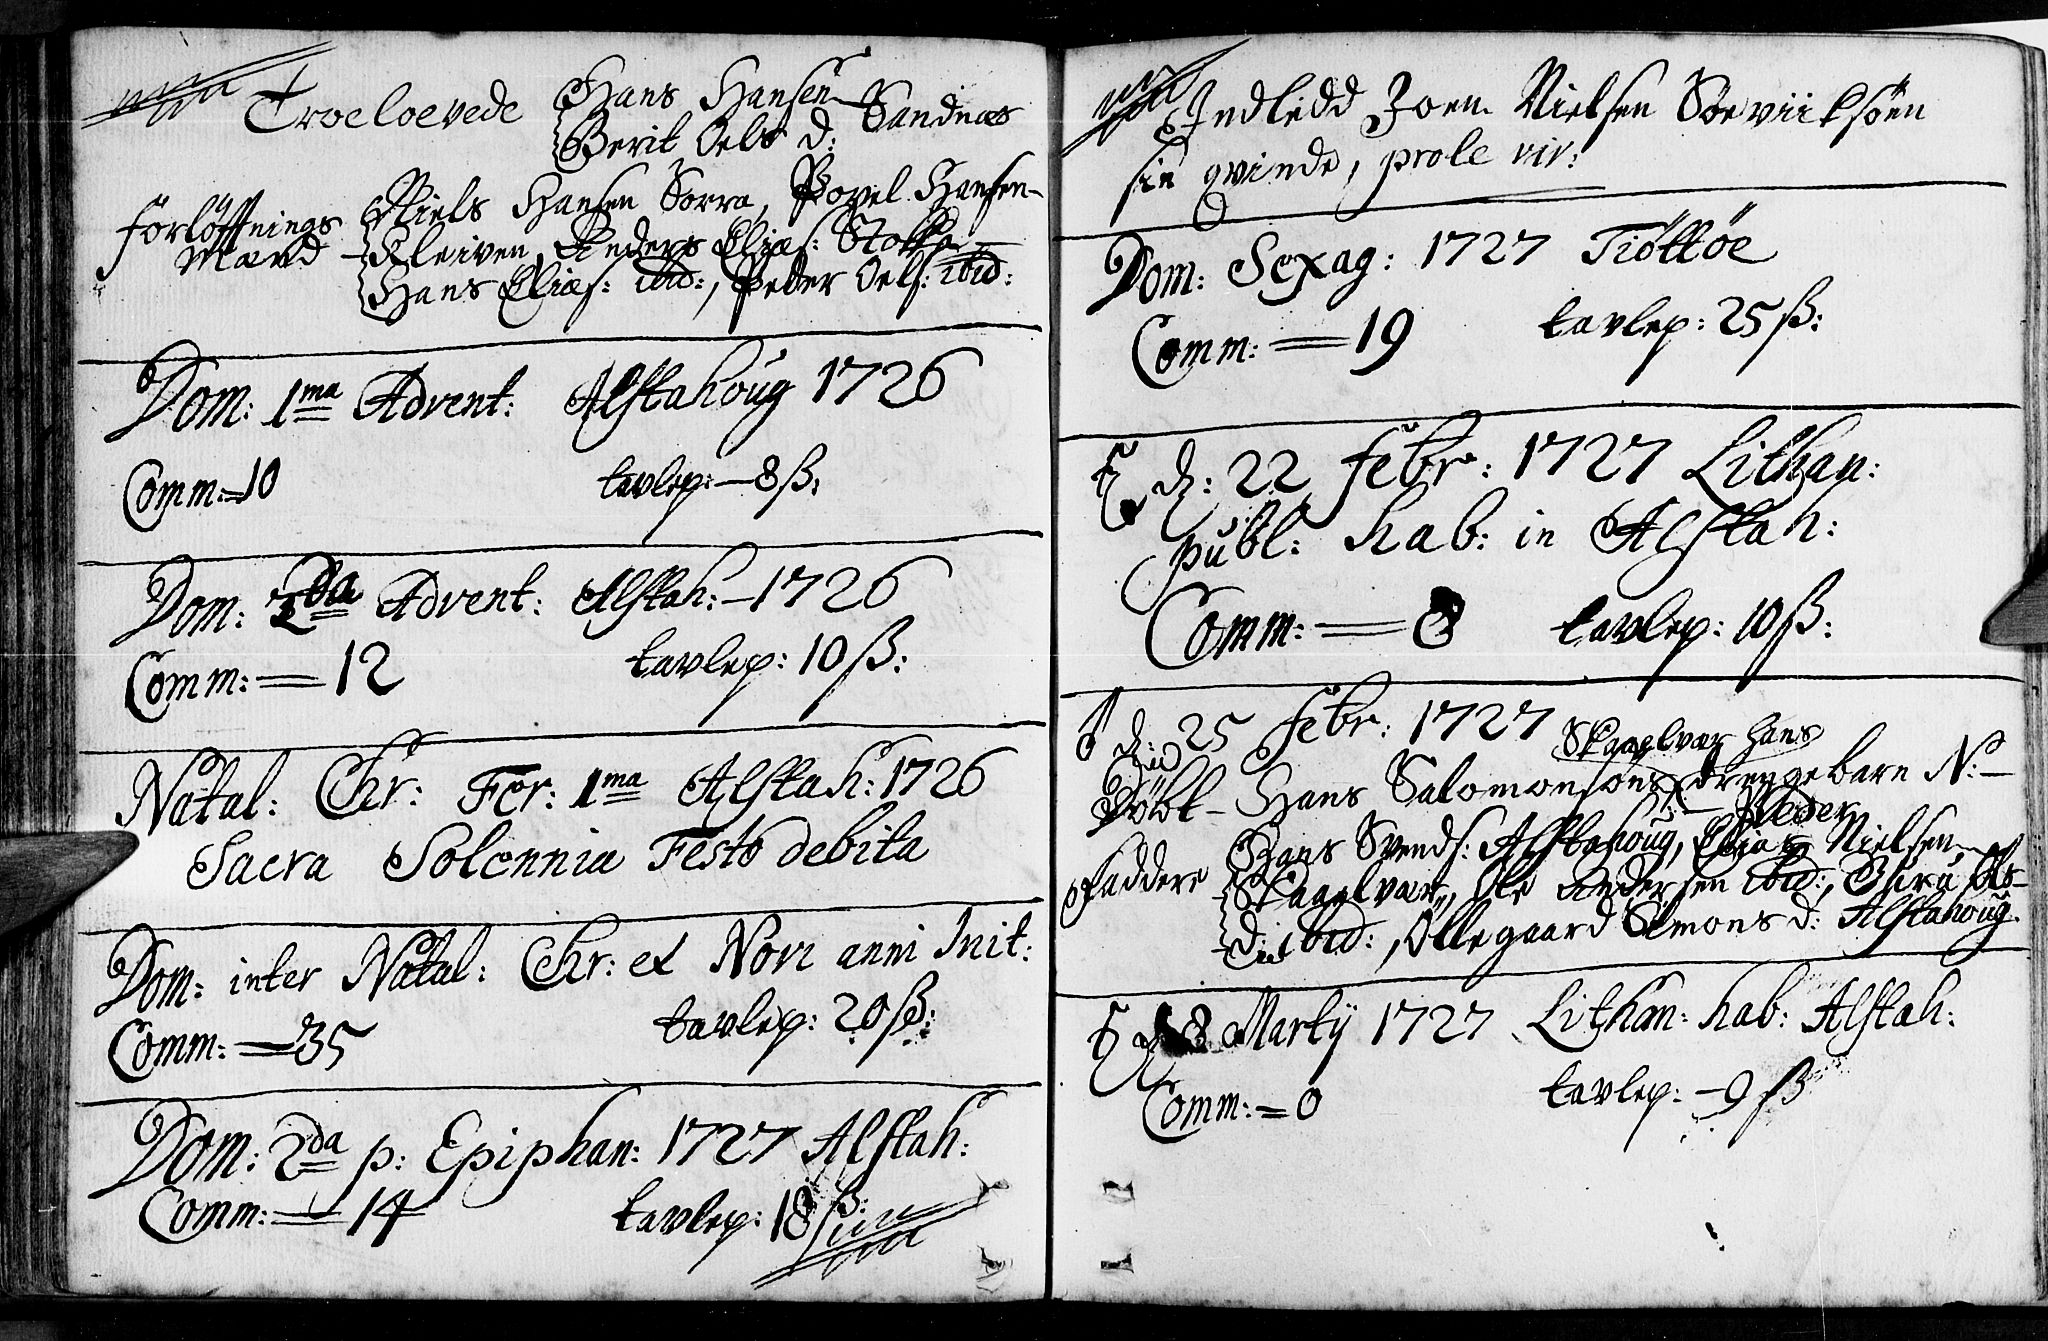 Troeloevede Hans Hansen Sandnæs
Berit Oels d:
Forlöffnings Niels Hansen Sorra, Povel Hansen-
Mænd Kleiven, Anders Eliæs: Stokka
Hans Eliæs: ibid:, Peder Oels: ibid:
Dom: 1ma Advent: Alstahoug 1726
Comm:=10 tavlep:-8ß:
Dom: 2da Advent: Alstah:-1726
Comm:=12 tavlep: 10ß:
Natal: Chr: Fer: 1ma Alstah: 1726
Sacra Solennia Festo debita
Dom: inter Natal: Chr: et Novi anni Init:
Comm:=35 tavlep: 20ß:
Dom: 2da p: Epiphan: 1727 Alstah:
Comm:=14 tavlep: 18ß:
Indledd Joen Nielsen Sørviiksöen
sin qvinde, prole viv:
Dom: Sexag: 1727 Tiöttöe
Comm:=19 tavlep: 25ß:
♄ d: 22 Febr: 1727 Lithan:
publ: hab: in Alstah:
Comm:=8 tavlep: 10ß:
d: 25 Febr: 1727 Skaalvær Hans
Döbt- Hans Salomonsöns drengebarn N:-
Peder
Faddere Hans Svends: Alstahoug, Elias Nielsen
Skaalvær, Ole Andersen ibid:, Guru Ols-
d: ibid:, Ollegaard Simons d: Alstahoug.
♄ d 8 Martij 1727 Lithan: hab: Alstah:
Comm:=0 tavlep:-9ß